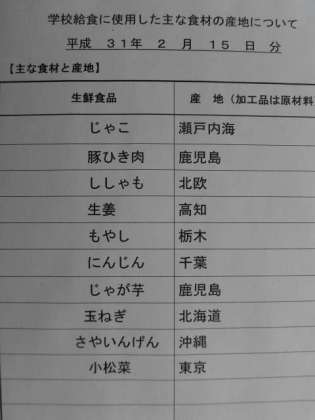 学校給食に使用した主な食材の産地について
平成 31年 2 月 15 日 分
【主な食材と産地】
生鮮食品 産 地（加工品は原材料
じゃこ 瀬戸内海
豚ひき肉 鹿児島
ししゃも 北欧
生姜 高知
もやし 栃木
にんじん 千葉
じゃが芋 鹿児島
玉ねぎ 北海道
さやいんげん 沖縄
小松菜 東京